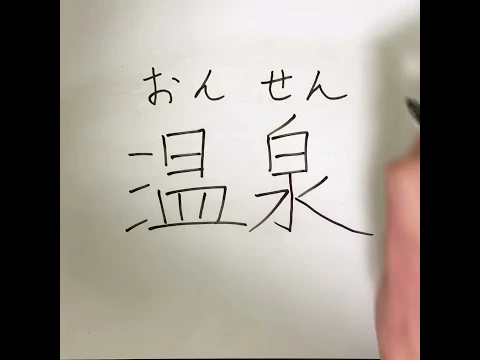 おん せん
温泉